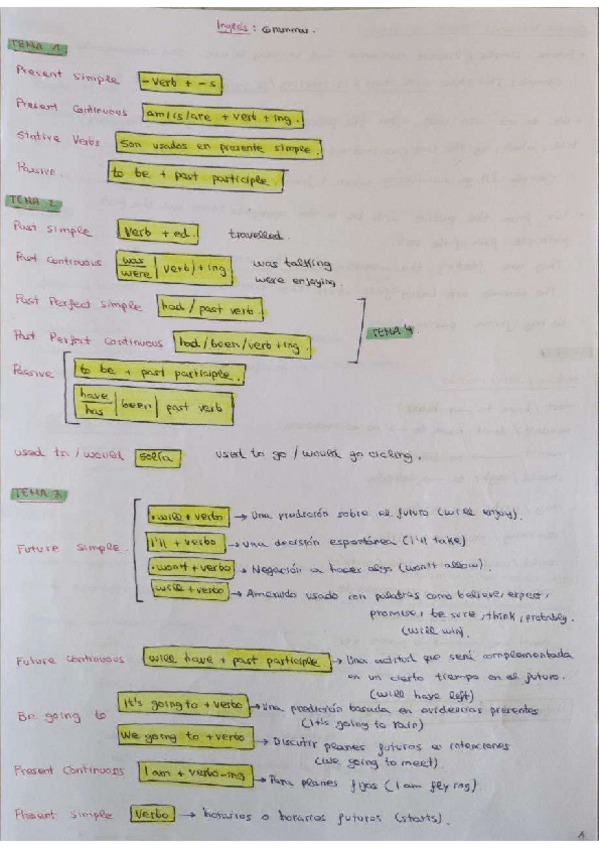 Inglés: Grammar.
TEMA 1
Present simple -verb + -s
Present Continuous am/is/are + verb + ing.
Stative Verbs son usados en presente simple.
Passive. to be + past participle.
TEMA 2
Past simple verb + ed. travelled.
Past continuous was/were | verb/+ing was talking
were enjoying.
Past Perfect simple had / past verb.
Past Perfect Continuous had/been/verb +ing. TEMA 4
Passive to be + past participle.
have/has | been | past verb
used to / would solía used to go / would go cicling.
TEMA 3
Future Simple.
·will + verbo → Una predicción sobre el futuro (will enjoy).
I'll + verbo → una decisión espontánea (I'll take)
·won't + verbo → Negación a hacer algo (won't allow).
will + verbo → usado con palabras como believe, expect,
promise, be sure, think, probably.
(will win).
Future Continuous will have + past participle → Una actitud que será complementada
en un cierto tiempo en el futuro.
(will have left)
Be going to It's going to + verbo → Una predicción basada en evidencias presentes
(It's going to rain)
We going to + verbo → Discutir planes futuros e intenciones
(we going to meet).
Present Continuous I am + verbo-ing → Para planes fijos (I am flying)
Present simple verbo → horarios o horarios futuros (starts).